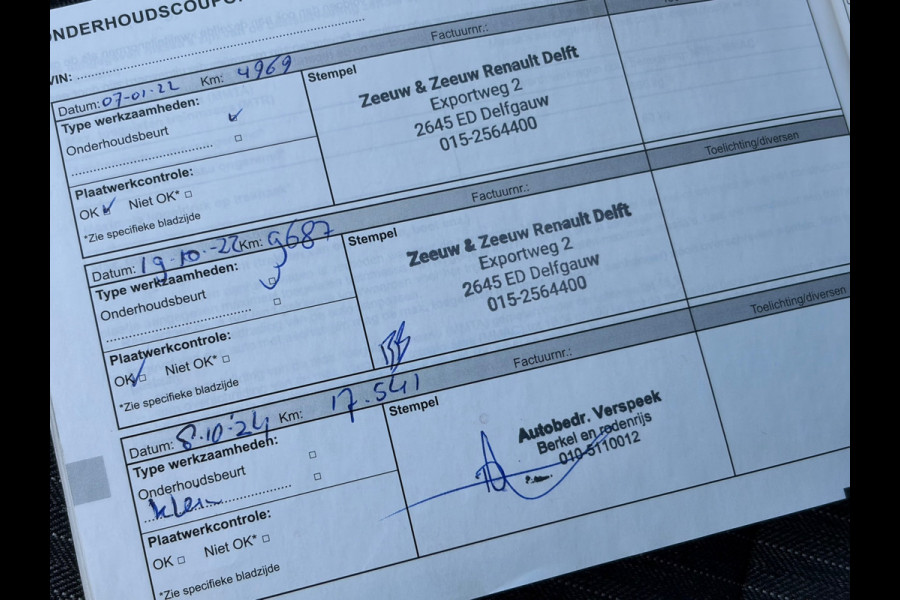 ONDERHOUDSCOUPO
VIN:
Factuurnr.:
Datum: 07-01-22 Km: 4969
Stempel
Type werkzaamheden:
Onderhoudsbeurt
Plaatwerkcontrole:
OK Niet OK*
*Zie specifieke bladzijde
Zeeuw & Zeeuw Renault Delft
Exportweg 2
2645 ED Delfgauw
015-2564400
Factuurnr.:
Toelichting/diversen
Datum: 19-10-22 Km: 9687
Stempel
Type werkzaamheden:
Onderhoudsbeurt
Plaatwerkcontrole:
OK Niet OK*
*Zie specifieke bladzijde
Zeeuw & Zeeuw Renault Delft
Exportweg 2
2645 ED Delfgauw
015-2564400
Factuurnr.:
Toelichting/diversen
Datum: 8-10-24 Km: 17.541
Stempel
Type werkzaamheden:
Onderhoudsbeurt
klein
Plaatwerkcontrole:
OK Niet OK*
*Zie specifieke bladzijde
Autobedr. Verspeek
Berkel en rodenrijs
010-5110012